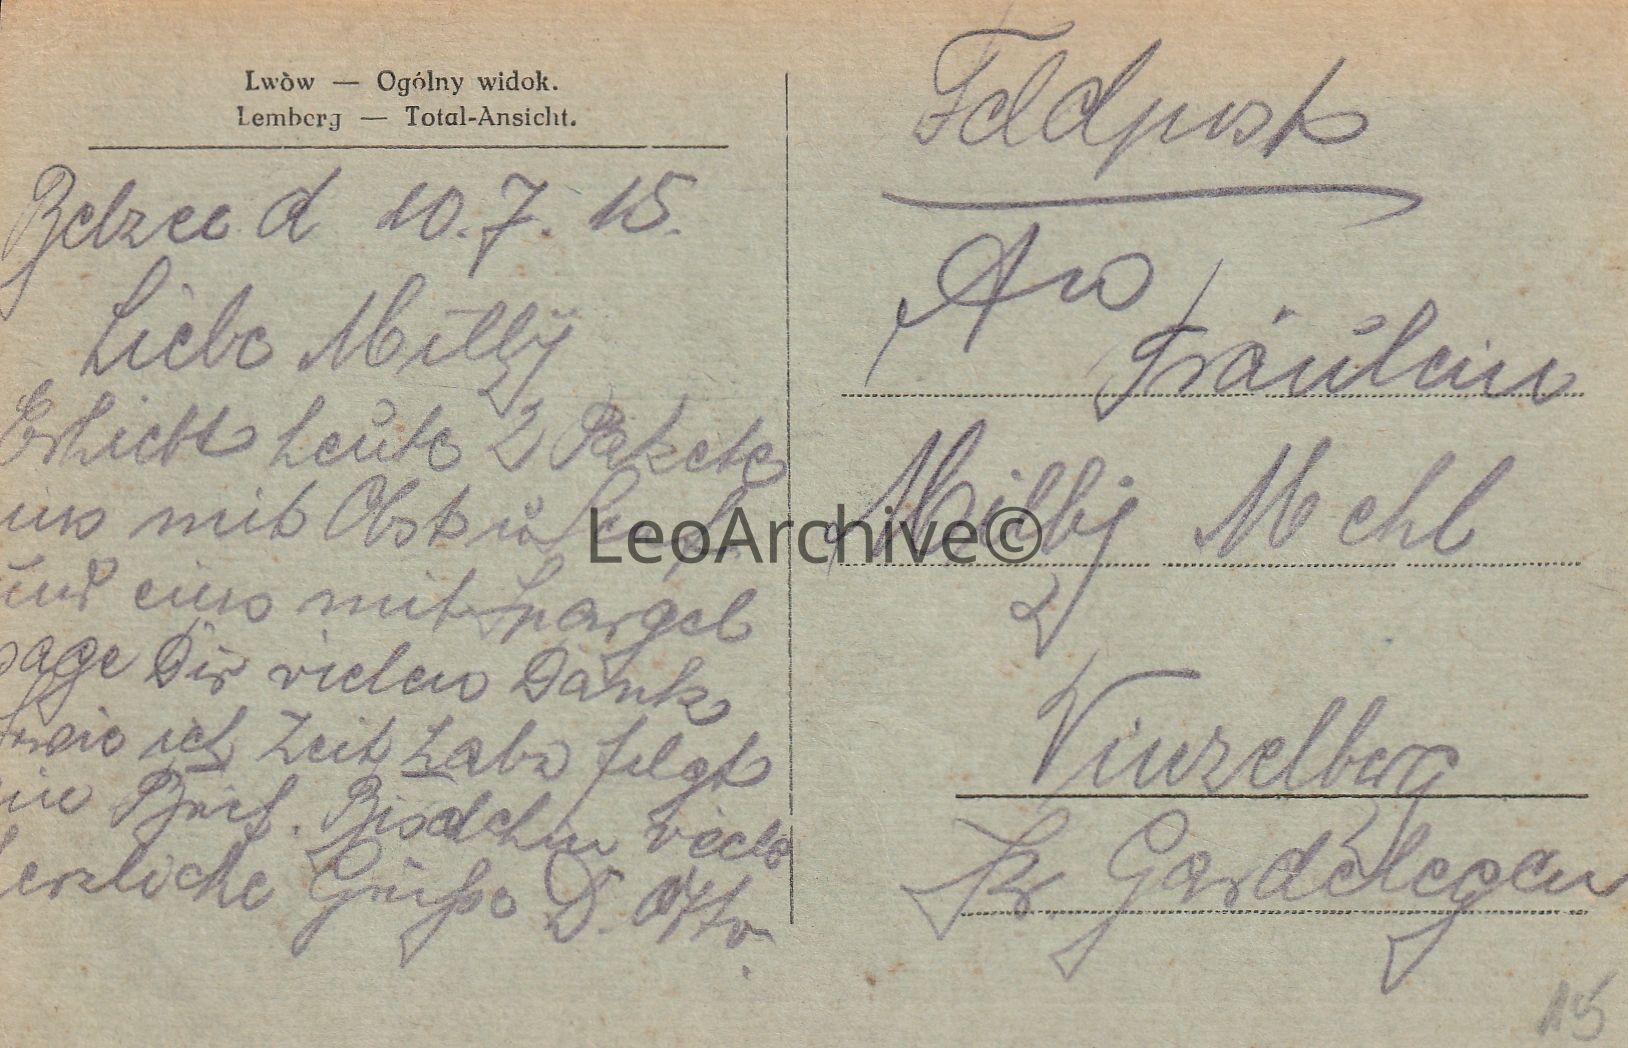 Lwòw — Ogólny widok.
Lemberg — Total-Ansicht.
Belzec d 10.7.15.
Liebe Milly
Erhielt heute 2 Pakete
eins mit Obst u
und eins mit Spargel
sage Dir vielen Dank
sowie ich Zeit habe folgt
ein Brief. Bisdahin viele
herzliche Grüße D. Otto.
Feldpost
An
Fräulein
Milly Mehl
Vinzelberg
Kr Gardelegen
15
LeoArchive©